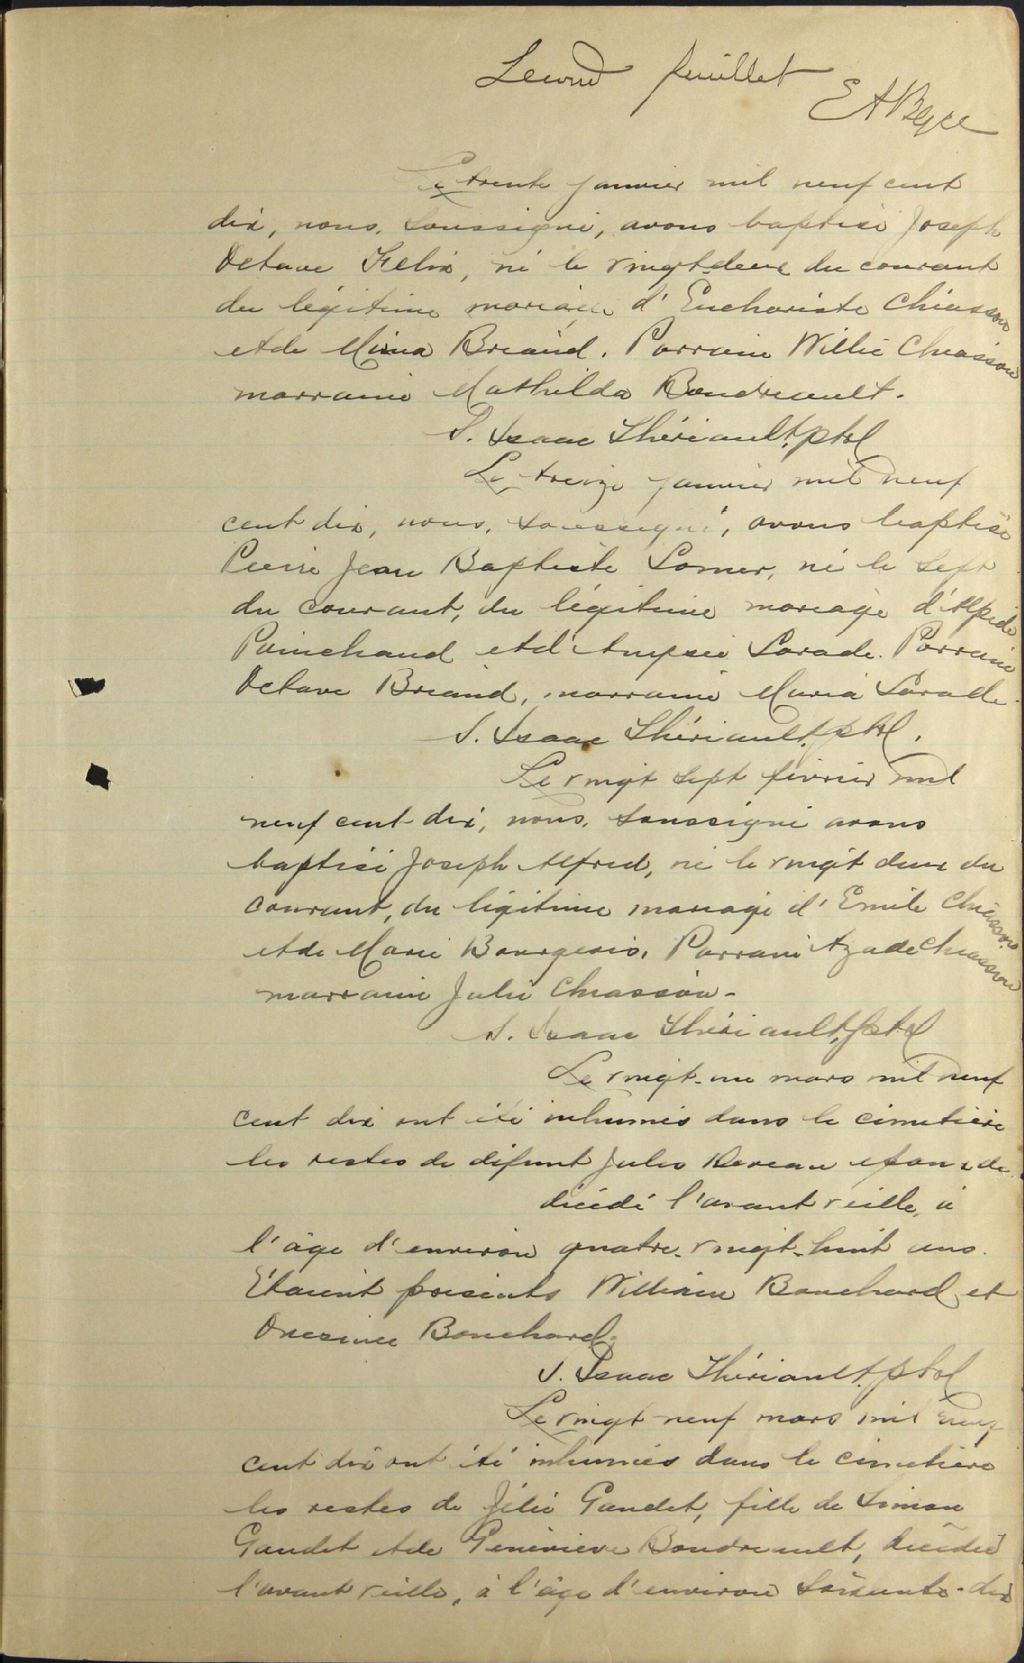 Second feuillet
Le trente janvier mil neuf cent
dix, nous, soussigné, avons baptisé Joseph
Octave Félix, né le vingt-deux du courant
du légitime mariage d'Euchariste Chiasson
et de Mina Briand. Parrain Willie Chiasson
marraine Mathilda Boudreault.
S. Isaac Thériault, ptre
Le treize janvier mil neuf
cent dix, nous, soussigné, avons baptisé
Pierre Jean Baptiste Lomer, né le sept
du courant, du légitime mariage d'Alpide
Poinchaud et d' Larade. Parrain
Octave Briand, marraine Maria Larade.
S. Isaac Thériault, ptre.
Le vingt sept février mil
neuf cent dix, nous, soussigné avons
baptisé Joseph Alfred, né le vingt deux du
courant, du légitime mariage d'Emile Chiasson
et de Marie Bourgeois. Parrain Azade Chiasson
marraine Julie Chiasson -
S. Isaac Thériault, ptre
Le vingt-un mars mil neuf
cent dix ont été inhumés dans le cimetière
les restes de défunt Jules Deveau époux de
décédé l'avant veille, à
l'âge d'environ quatre-vingt-huit ans.
Étaient présents William Bouchard et
Onésime Bouchard.
S. Isaac Thériault, ptre
Le vingt-neuf mars mil neuf
cent dix ont été inhumés dans le cimetière
les restes de Gaudet, fille de Simon
Gaudet et de Geneviève Boudreault, décédée
l'avant veille, à l'âge d'environ soixante-dix